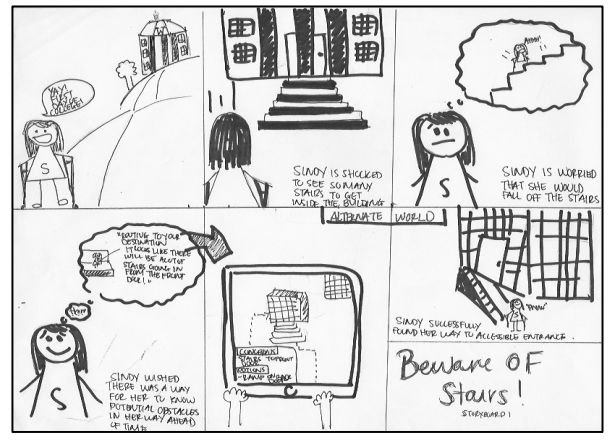 YAY!
FIRST
DAY OF
COLLEGE!
S
SINDY IS SHOCKED
TO SEE SO MANY
STAIRS TO GET
INSIDE THE BUILDING
AHHH!
S
SINDY IS WORRIED
THAT SHE WOULD
FALL OFF THE STAIRS
"ROUTING TO YOUR
DESTINATION
IT LOOKS LIKE THERE
WILL BE A LOT OF
STAIRS GOING IN
FROM THE FRONT
DOOR!"
S
SINDY WISHED
THERE WAS A WAY
FOR HER TO KNOW
POTENTIAL OBSTACLES
IN HER WAY AHEAD
OF TIME
ALTERNATE WORLD
CONCERNS
STAIRS TO FRONT
DOOR
OPTIONS
- RAMP ON BACK
SINDY SUCCESSFULLY
FOUND HER WAY TO ACCESSIBLE ENTRANCE.
Beware OF
Stairs!
STORYBOARD 1